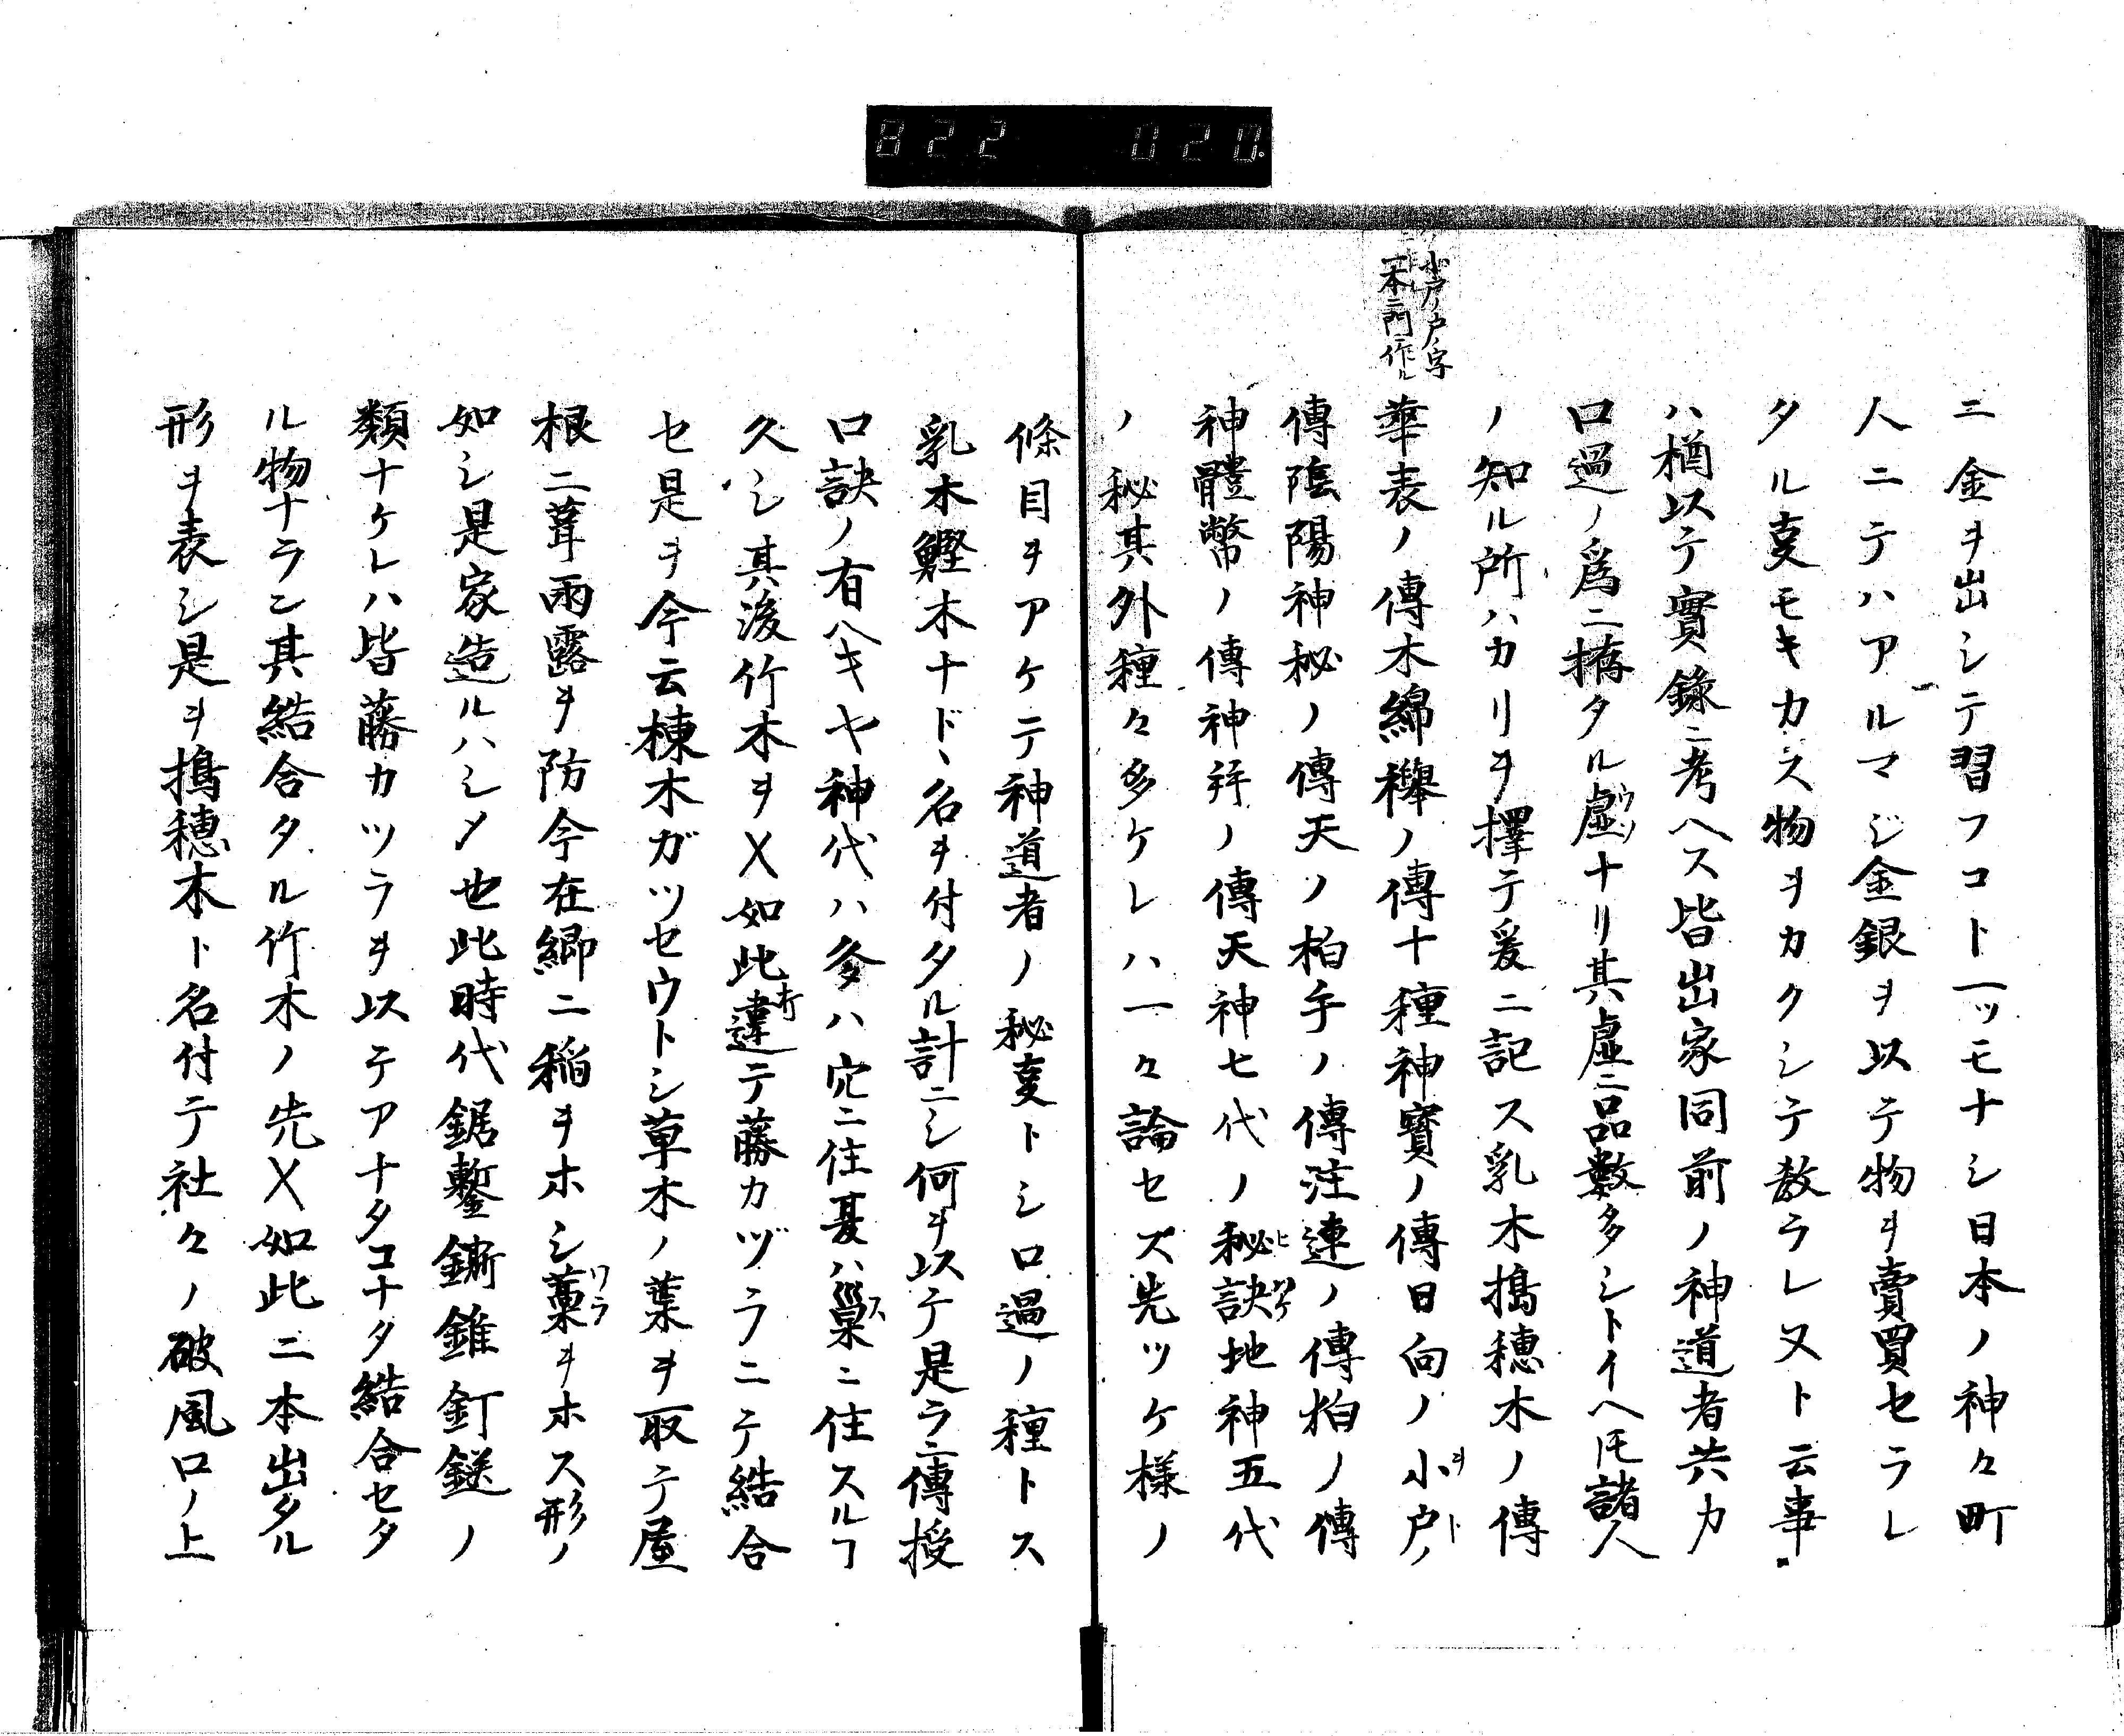 822 020.
小戸ノ戸ノ字
一本ニ門ニ作ル
ニ金ヲ出シテ習フコト一ツモナシ日本ノ神々町
人ニテハアルマジ金銀ヲ以テ物ヲ賣買セラレ
タル叓モキカス物ヲカクシテ教ラレヌト云事
ハ樽以テ實錄ニ考ヘス皆出家同前ノ神道者共カ
口過ノ爲ニ拵タル虚ナリ其虚ニ品數多シトイヘ𪜈諸人
ノ知ル所ハカリヲ擇テ爰ニ記ス乳木搗穂木ノ傳
華表ノ傳木綿襷ノ傳十種神寳ノ傳日向ノ小戸ノ
傳陰陽神秘ノ傳天ノ柏手ノ傳注連ノ傳柏ノ傳
神體幣ノ傳神拝ノ傳天神七代ノ秘訣地神五代
ノ秘其外種々多ケレハ一々論セズ先ツケ様ノ
條目ヲアケテ神道者ノ秘叓トシ口過ノ種トス
乳木鰹木ナドヽ名ヲ付タル計ニシ何ヲ以テ是ラニ傳授
口訣ノ有ヘキヤ神代ハ冬ハ穴ニ住夏ハ巣ニ住スルヿ
久シ其後竹木ヲ㐅如此違テ藤カヅラニテ結合
セ是ヲ今云棟木ガツセウトシ草木ノ葉ヲ取テ屋
根ニ葺雨露ヲ防今在郷ニ稲ヲホシ藁ヲホス形ノ
如シ是家造ルハシメ也此時代鋸鏨鐁錐釘鎹ノ
類ナケレハ皆藤カツラヲ以テアナタコナタ結合セタ
ル物ナラン其結合タル竹木ノ先㐅如此ニ本出タル
形ヲ表シ是ヲ搗穂木ト名付テ社々ノ破風口ノ上